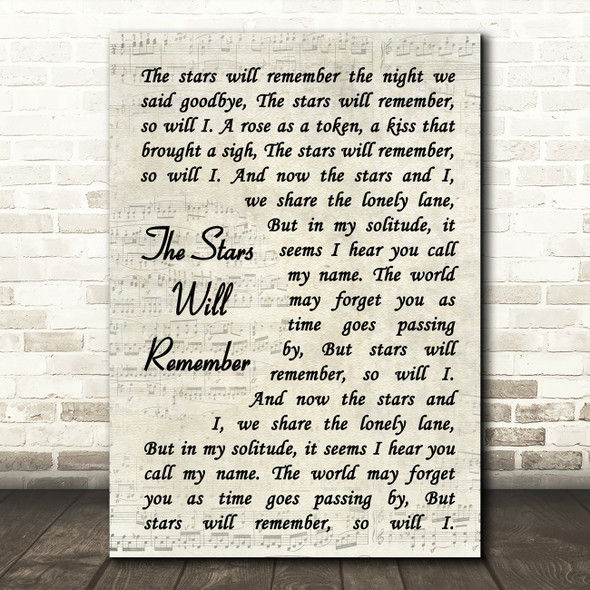 The stars will remember the night we
said goodbye, The stars will remember,
so will I. A rose as a token, a kiss that
brought a sigh, The stars will remember,
so will I. And now the stars and I,
we share the lonely lane,
But in my solitude, it
seems I hear you call
my name. The world
may forget you as
time goes passing
by, But stars will
remember, so will I.
And now the stars and
I, we share the lonely lane,
But in my solitude, it seems I hear you
call my name. The world may forget
you as time goes passing by, But
stars will remember, so will I.
The Stars
Will
Remember